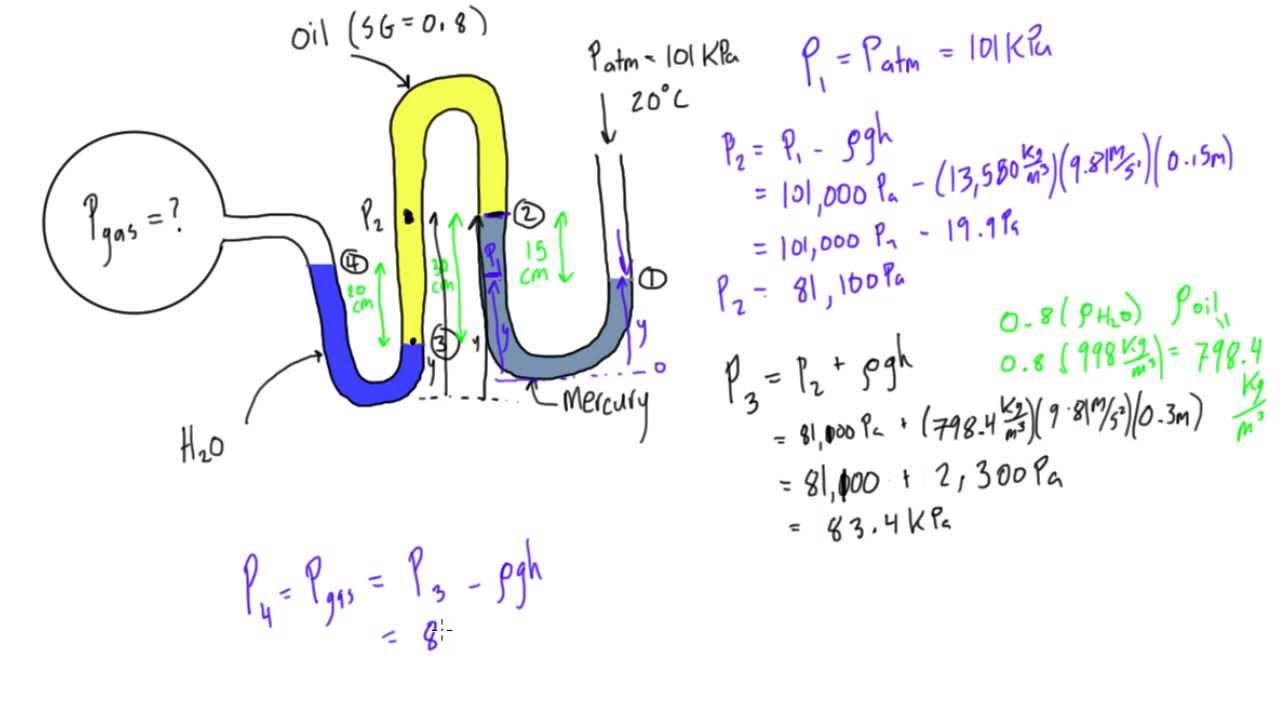 Oil (SG = 0.8)
Patm = 101 KPa
20°C
Pgas = ?
P2
②
④
20 cm
30 cm
P1
15 cm
①
③
y
y
y
y
0
H2O
Mercury
P1 = Patm = 101 KPa
P2 = P1 - ρgh
= 101,000 Pa - (13,580 Kg/m³)(9.81 m/s²)(0.15m)
= 101,000 Pa - 19.9 Pa
P2 = 81,100 Pa
0.8 (ρH2O) ρoil
0.8 (998 Kg/m³) = 798.4 Kg/m³
P3 = P2 + ρgh
= 81,100 Pa + (798.4 Kg/m³)(9.81 m/s²)(0.3m)
= 81,100 + 2,300 Pa
= 83.4 KPa
P4 = Pgas = P3 - ρgh
= 8